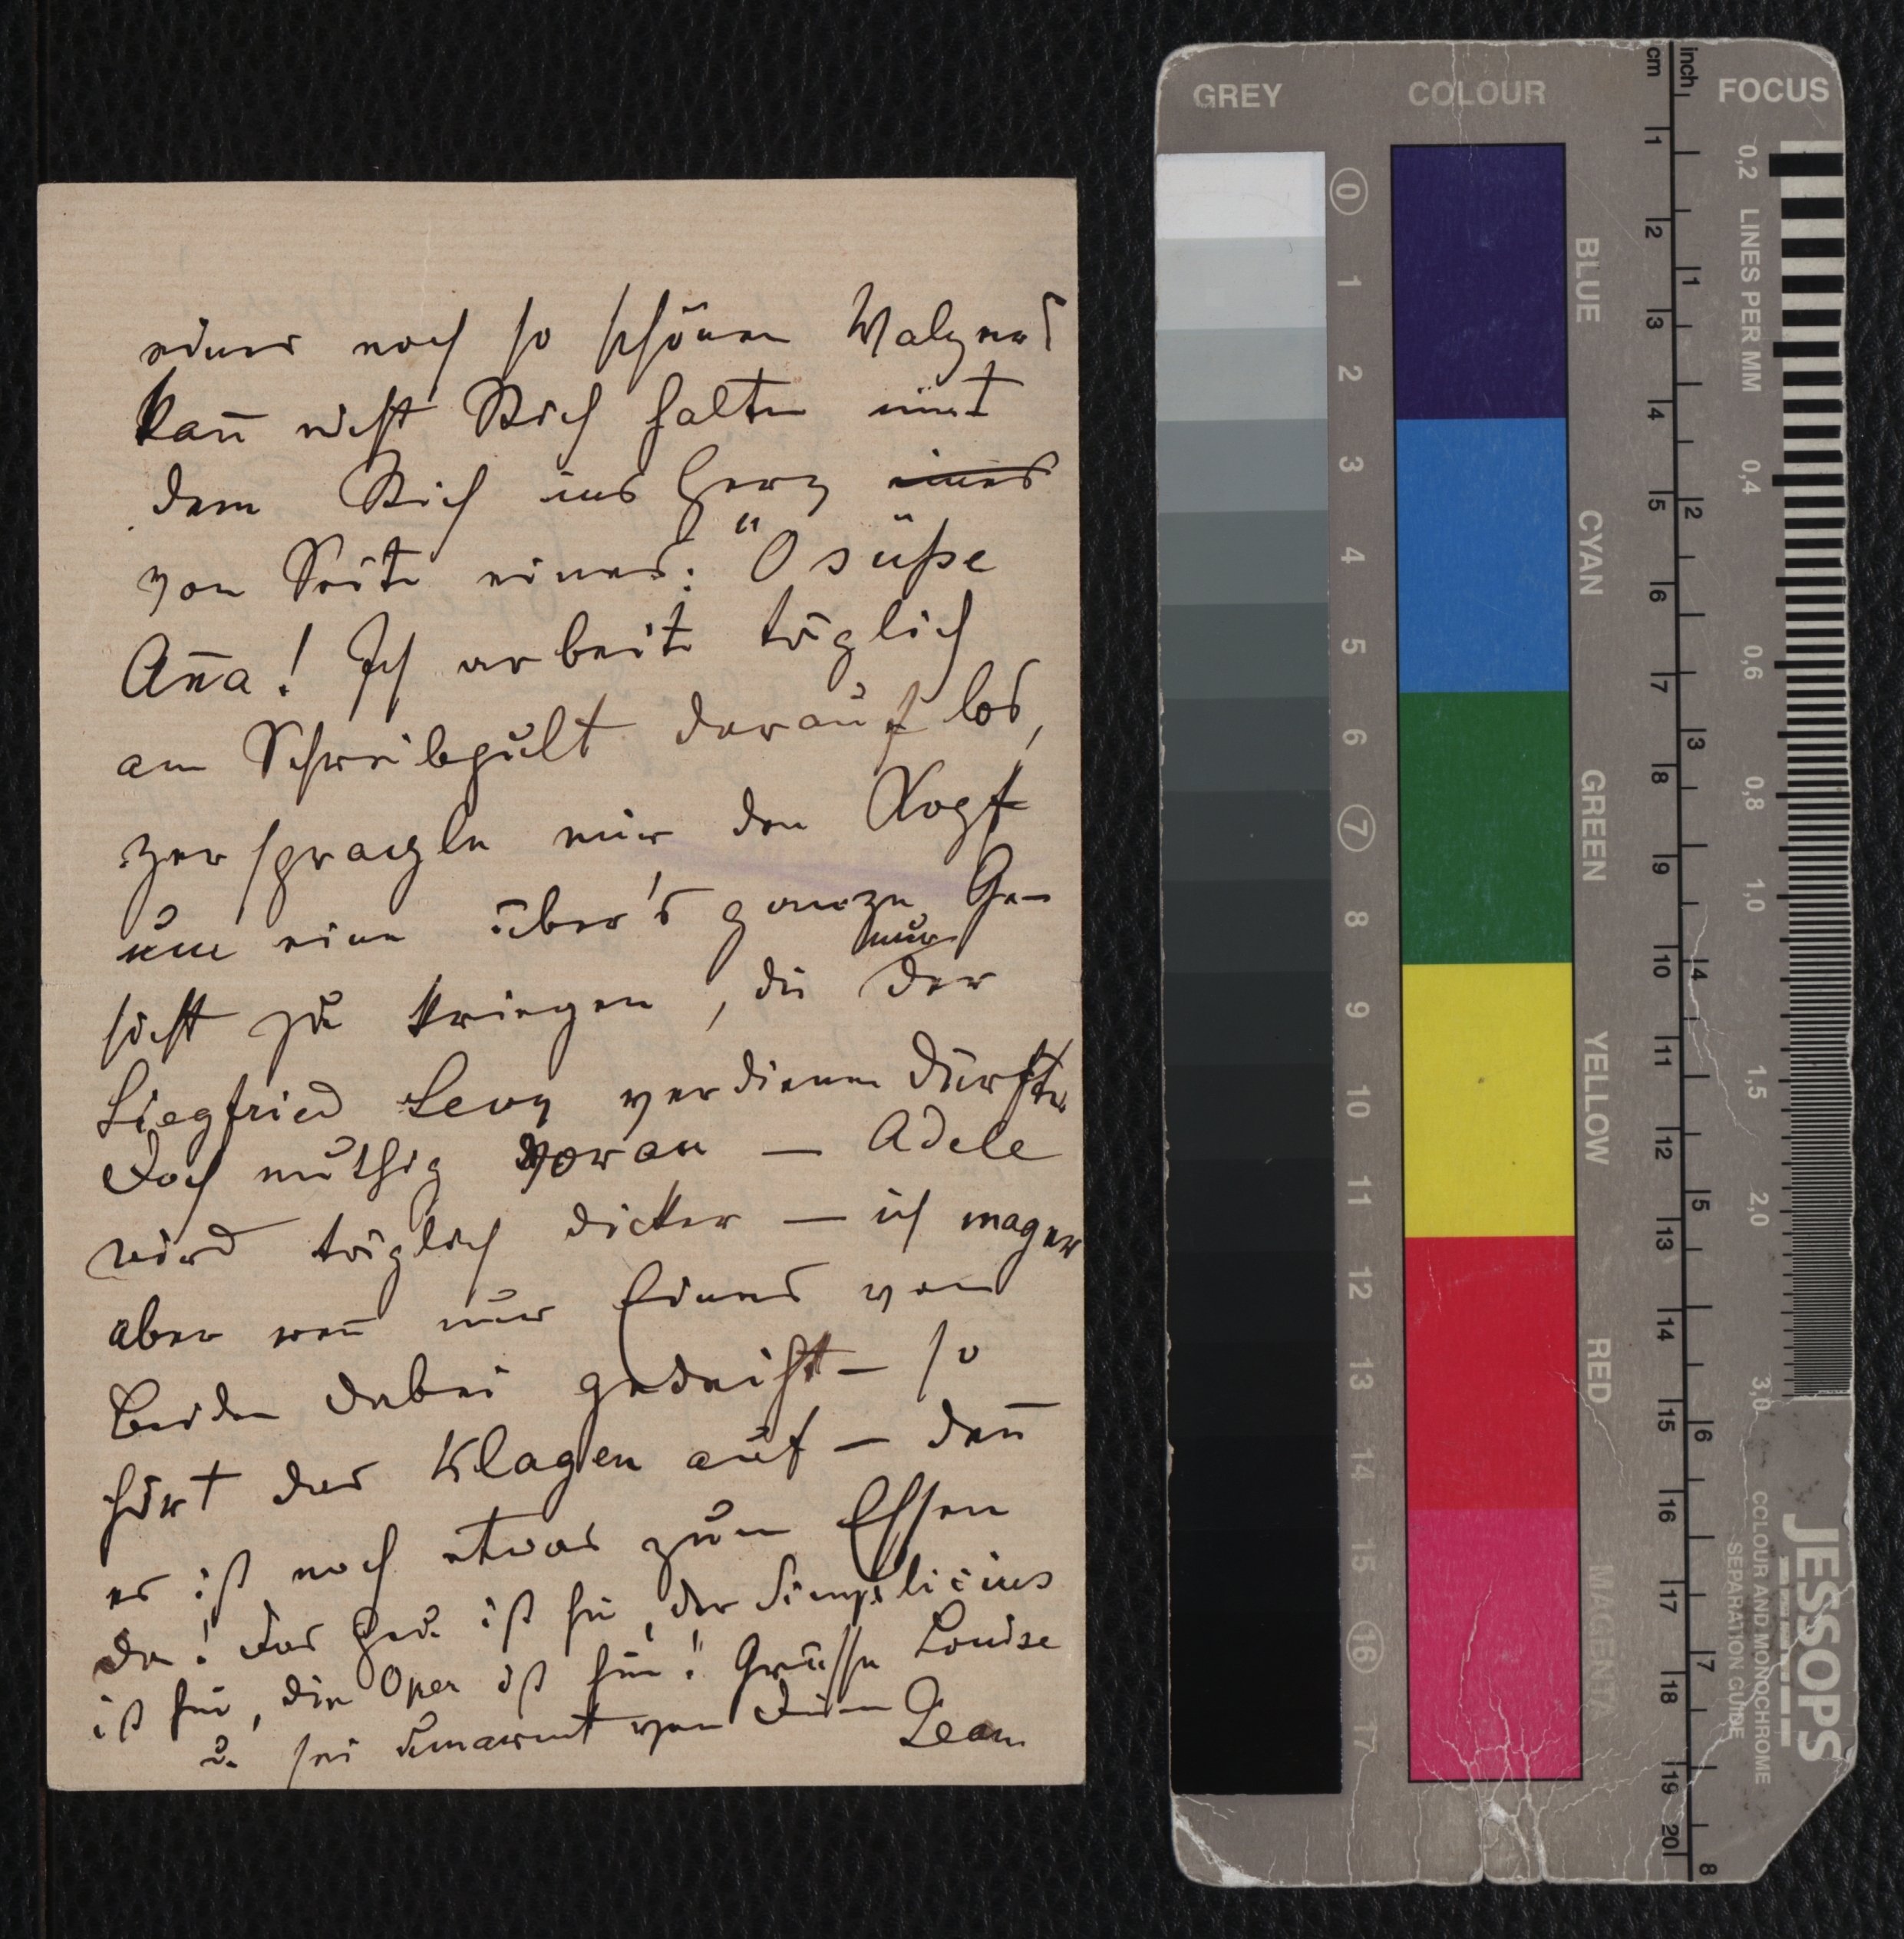 eines noch so schönen Walzers
kan̅ nicht Stich halten mit
dem Stich ins Herz eines
von Seite eines: "O süße
An̅a! Ich arbeite täglich
am Schreibpult darauf los,
zersprargle mir den Kopf
um eine über's ganze Ge-
nur
sicht zu kriegen, die der
Siegfried Levy verdienen dürfte.
Doch muthig voran — Adele
wird täglich dicker — ich mager
aber wen̅ nur Eines von
Beiden dabei gedeiht — so
hört das Klagen auf — den̅
es ist noch etwas zum Essen
da! Das ist hin, der Simplicius
ist hin, die Oper ist hin! Grüsse Louise
u. sei umarmt von Deinem
Jean
GREY
COLOUR
FOCUS
cm
inch
0 1 2 3 4 5 6 7 8 9 10 11 12 13 14 15 16 17
BLUE
CYAN
GREEN
YELLOW
RED
MAGENTA
1 2 3 4 5 6 7 8 9 10 11 12 13 14 15 16 17 18 19 20
1 2 3 4 5 6 7 8
0,2 LINES PER MM 0,4 0,6 0,8 1,0 1,5 2,0 3,0
JESSOPS
COLOUR AND MONOCHROME
SEPARATION GUIDE